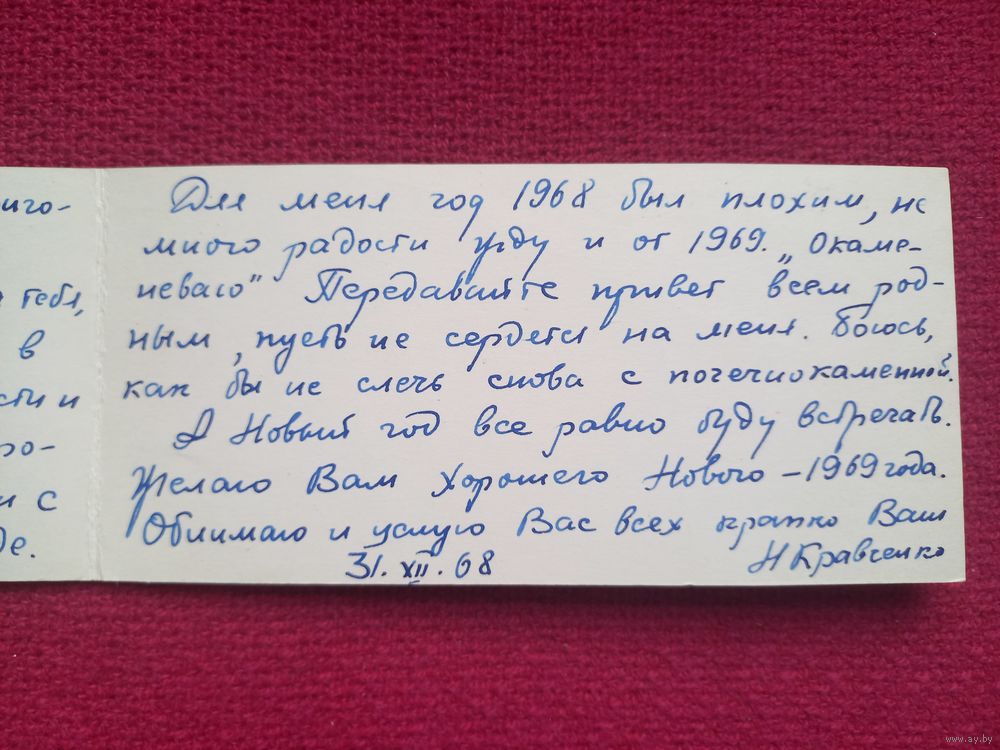 иго-
тебя,
в
сти и
ро-
и с
де.
Для меня год 1968 был плохим, не
много радости жду и от 1969. „Окаме-
неваю" Передавайте привет всем род-
ным, пусть не сердется на меня. Боюсь,
как бы не слечь снова с почечнокаменной.
А Новый год все равно буду встречать.
Желаю Вам хорошего Нового – 1969 года.
Обнимаю и целую Вас всех крепко Ваш
31. XII. 68
Н Кравченко
www.ay.by